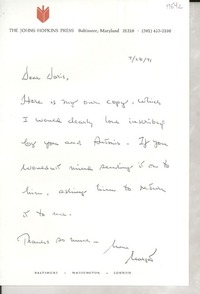 THE JOHNS HOPKINS PRESS Baltimore, Maryland 21218 · (301)
Dear Doris,
Here is my own copy, which
I would dearly love inscribed
by you and . If you
wouldn't mind sending it on to
him, asking him to return
it to me.
Thanks so much —
BALTIMORE · WASHINGTON · LONDON